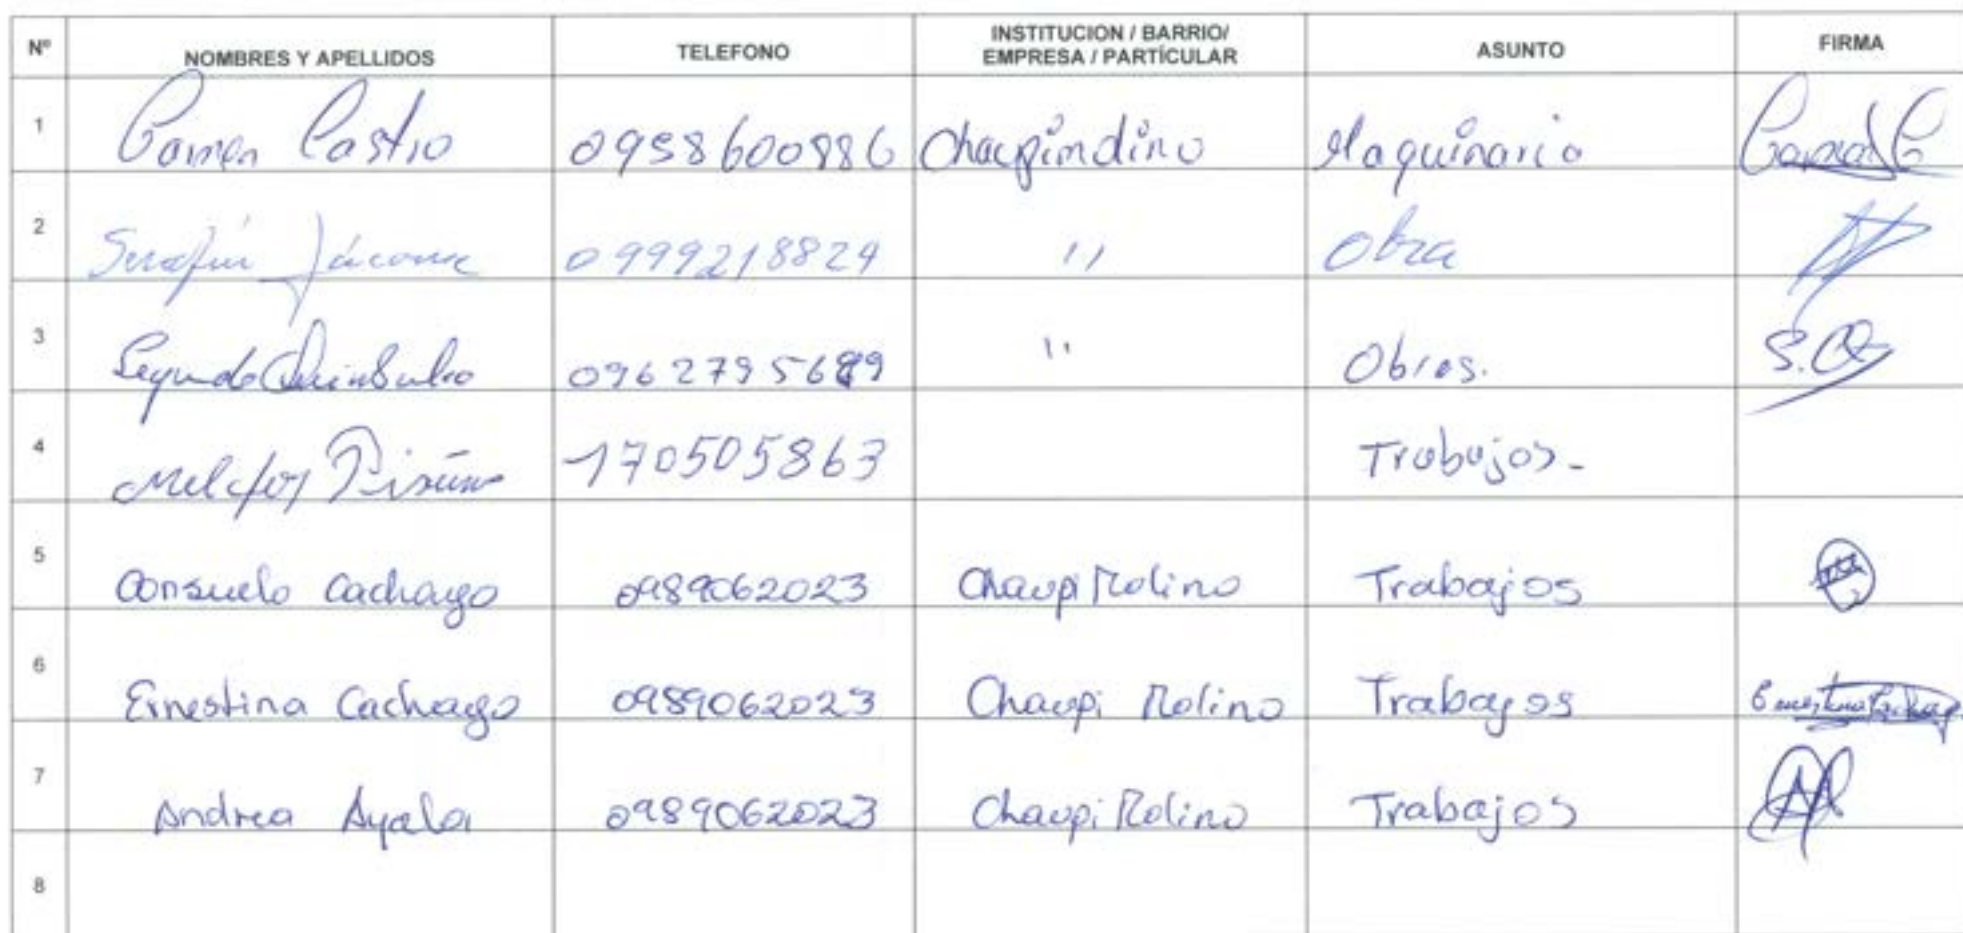 Nº NOMBRES Y APELLIDOS TELEFONO INSTITUCION / BARRIO/ EMPRESA / PARTÍCULAR ASUNTO FIRMA
1 Carmen Castro 0958600886 Maquinaria
2 Serafín Jácome 0999218824 '' Obra
3 Segundo 0962795689 '' Obras. S.Q
4 170505863 Trabajos-
5 Consuelo Cachago 0989062023 Chaupi Molino Trabajos
6 Ernestina Cachago 0989062023 Chaupi Molino Trabajos Ernestina Cachago
7 Andrea Ayala 0989062023 Chaupi Molino Trabajos
8